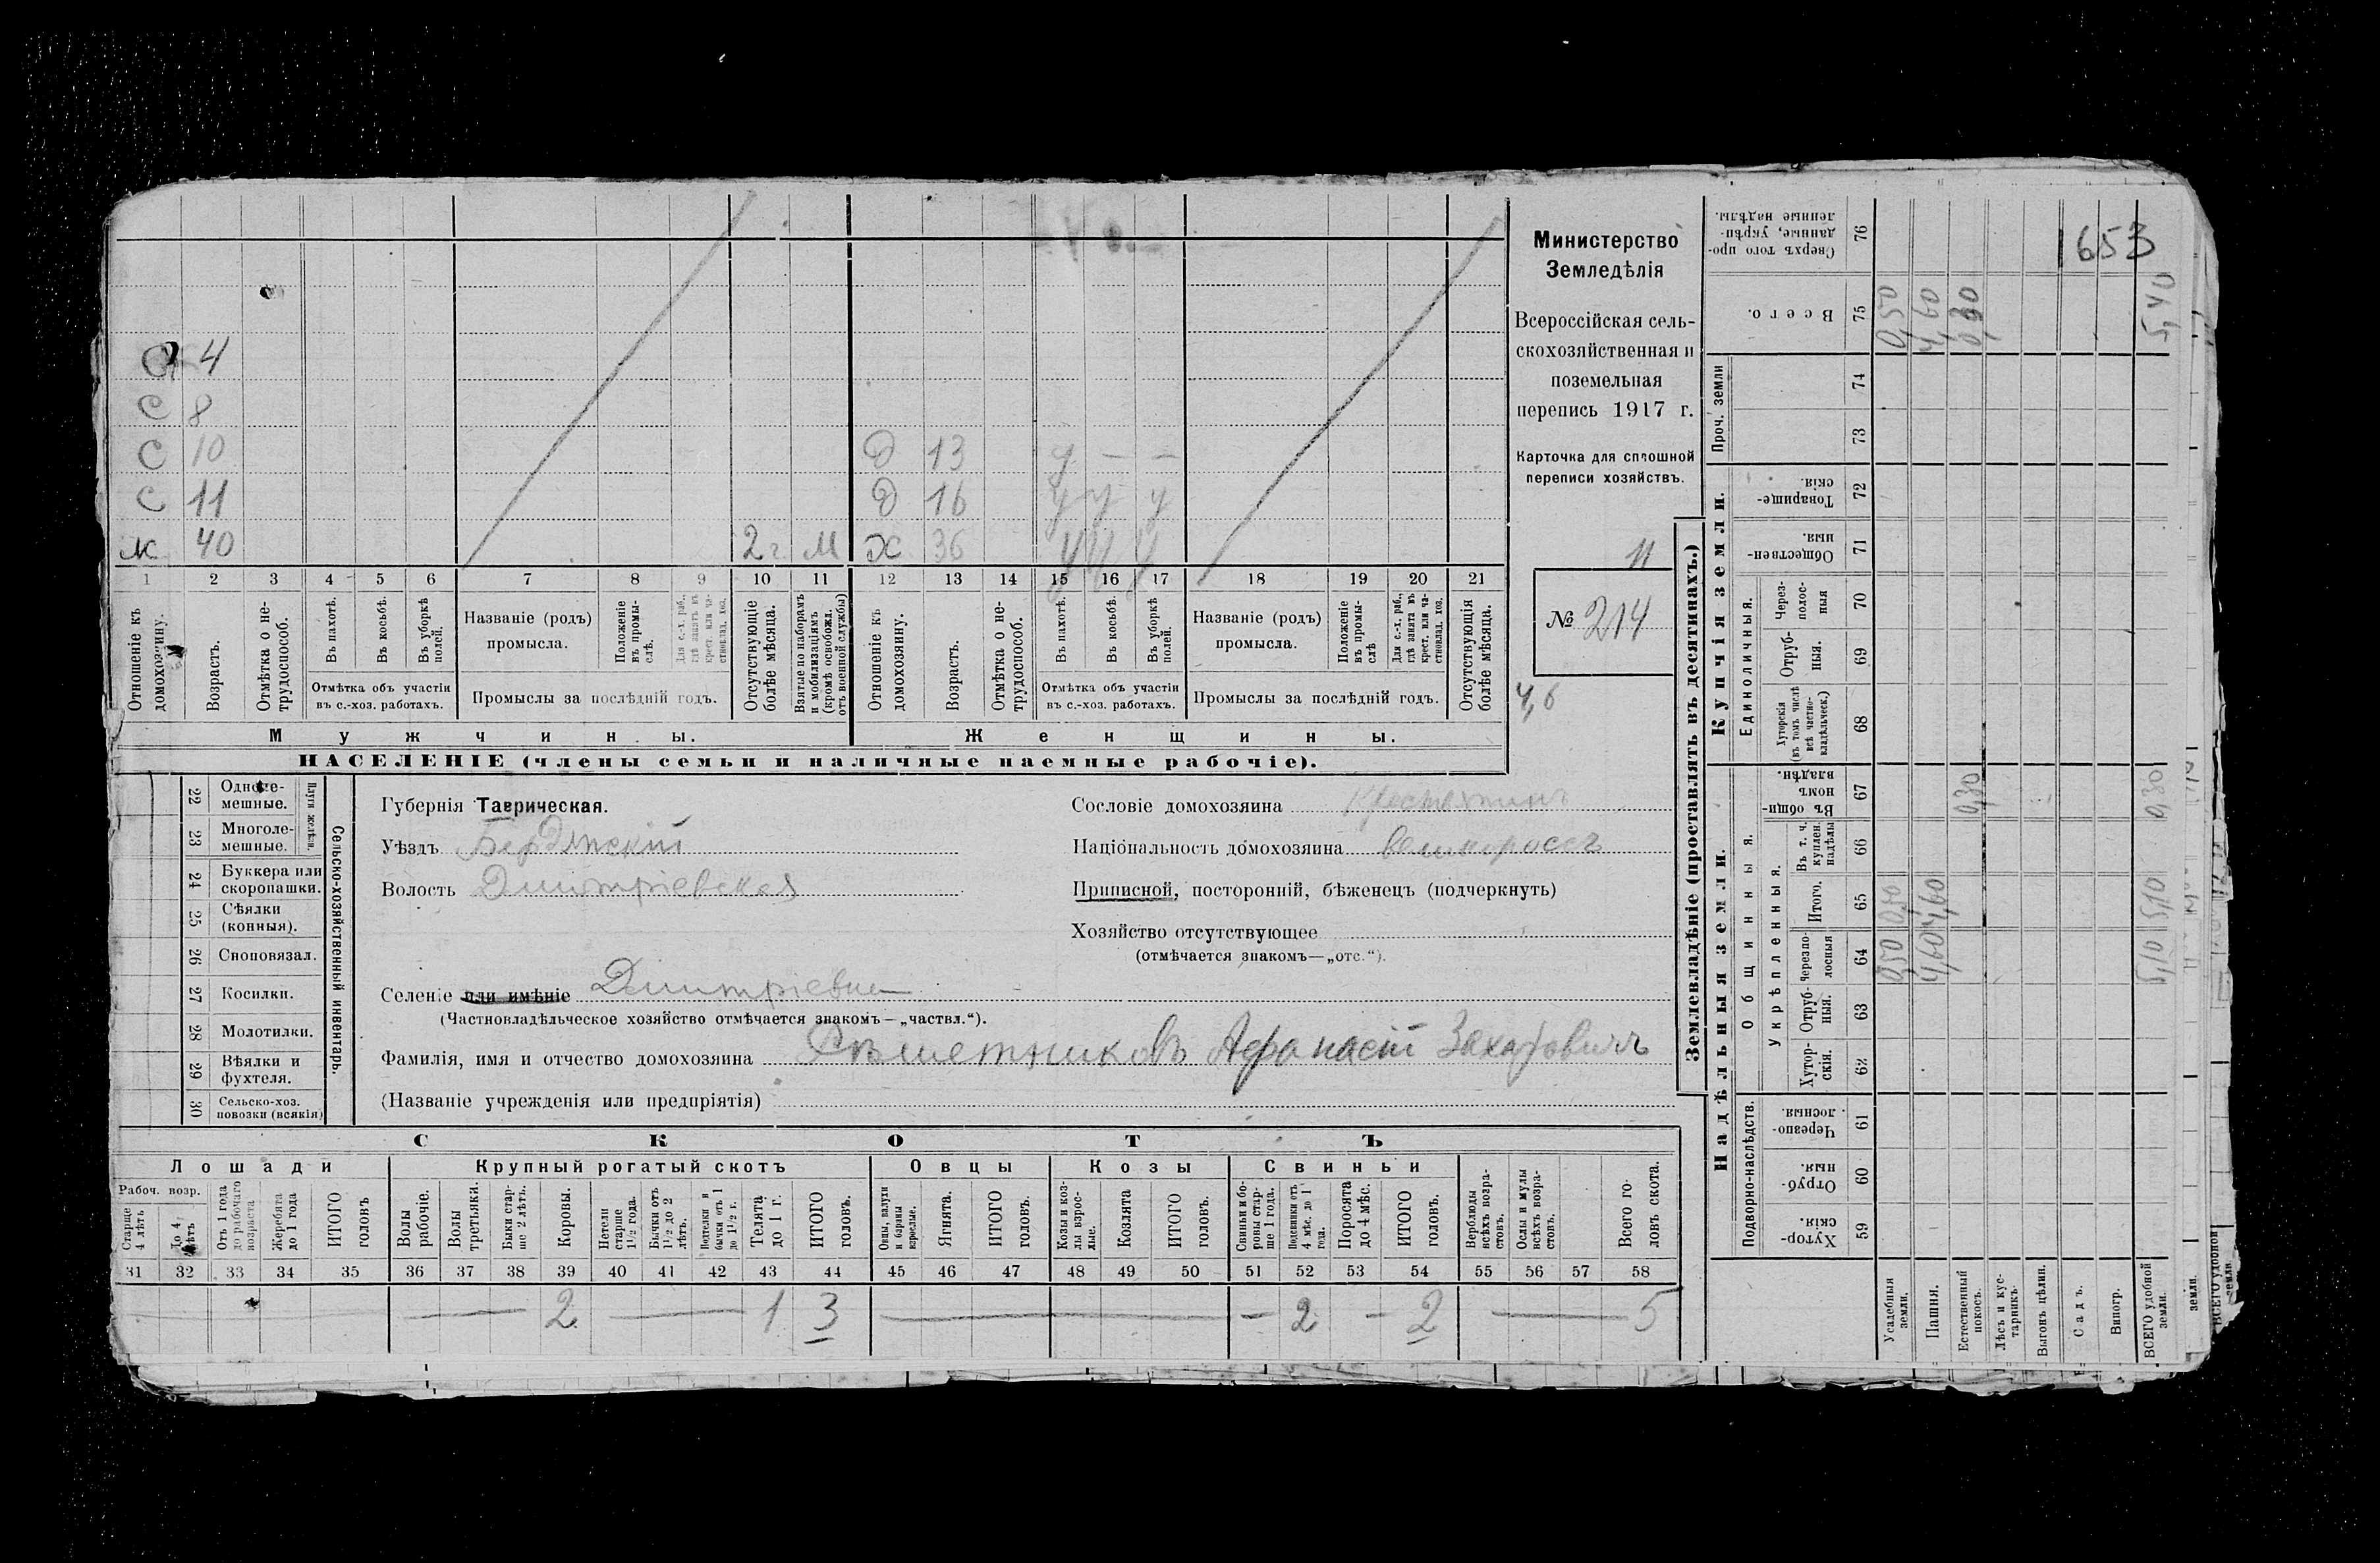 С 4
С 8
С 10 Д 13 у — —
С 11 Д 16 у у у
м 40 2 г М Ж 36 у у у
1 2 3 4 5 6 7 8 9 10 11 12 13 14 15 16 17 18 19 20 21
Отношеніе къ домохозяину.
Возрастъ.
Отмѣтка о нетрудоспособ.
Въ пахотѣ.
Въ косьбѣ.
Въ уборкѣ полей.
Отмѣтка объ участіи въ с.-хоз. работахъ.
Названіе (родъ) промысла.
Положеніе въ промыслѣ.
Для с.-х. раб., гдѣ занятъ въ крест. или частновлад. хоз.
Промыслы за послѣдній годъ.
Отсутствующіе болѣе мѣсяца.
Взятые по наборамъ и мобилизаціямъ (кромѣ освобожд. отъ военной службы)
Отношеніе къ домохозяину.
Возрастъ.
Отмѣтка о нетрудоспособ.
Въ пахотѣ.
Въ косьбѣ.
Въ уборкѣ полей.
Отмѣтка объ участіи въ с.-хоз. работахъ.
Названіе (родъ) промысла.
Положеніе въ промыслѣ
Для с.-х. раб., гдѣ занята въ крест. или частновлад. хоз.
Промыслы за послѣдній годъ.
Отсутствующія болѣе мѣсяца.
Мужчины. Женщины.
НАСЕЛЕНІЕ (члены семьи и наличные наемные рабочіе).
Министерство
Земледѣлія
Всероссійская сель-
скохозяйственная и
поземельная
перепись 1917 г.
Карточка для сплошной
переписи хозяйствъ.
11
№ 214
4,6
Сельско-хозяйственный инвентарь.
Плуги желѣзн.
22 Однолемешные.
23 Многолемешные.
24 Буккера или скоропашки.
25 Сѣялки (конныя).
26 Сноповязал.
27 Косилки.
28 Молотилки.
29 Вѣялки и фухтеля.
30 Сельско-хоз. повозки (всякія)
Губернія Таврическая.
Уѣздъ Бердянскій
Волость Дмитріевская
Сословіе домохозяина крестьянинъ
Національность домохозяина великороссъ
Приписной, посторонній, бѣженецъ (подчеркнуть)
Хозяйство отсутствующее
(отмѣчается знакомъ—„отс.“).
Селеніе или имѣніе Дмитріевка
(Частновладѣльческое хозяйство отмѣчается знакомъ—„частвл.“).
Фамилія, имя и отчество домохозяина Рѣшетниковъ Афанасій Захаровичъ
(Названіе учрежденія или предпріятія)
СКОТЪ
Лошади Крупный рогатый скотъ Овцы Козы Свиньи
Рабоч. возр.
Старше 4 лѣтъ
До 4 лѣтъ
Отъ 1 года до рабочаго возраста
Жеребята до 1 года
ИТОГО головъ
Волы рабочіе.
Волы третьяки.
Быки старше 2 лѣтъ.
Коровы.
Нетели старше 1½ года.
Бычки отъ 1½ до 2 лѣтъ.
Телята до 1 г.
ИТОГО головъ.
Овцы, валухи и бараны взрослые.
Ягнята.
ИТОГО головъ.
Козы и козлы взрослые.
Козлята
ИТОГО головъ.
Свиньи и боровы старше 1 года.
Подсвинки отъ 4 мѣс. до 1 года.
Поросята до 4 мѣс.
ИТОГО головъ.
Верблюды всѣхъ возрастовъ.
Ослы и мулы всѣхъ возрастовъ.
Всего головъ скота.
31 32 33 34 35 36 37 38 39 40 41 42 43 44 45 46 47 48 49 50 51 52 53 54 55 56 57 58
— — 2 — 1 3 — — 2 — 2 — 5
Землевладѣніе (проставлять въ десятинахъ.)
Надѣльныя земли. Купчія земли. Проч. земли
Подворно-наслѣдств.
Общинныя.
Укрѣпленныя.
Единоличныя.
59 Хуторскія.
60 Отрубныя.
61 Черезполосныя.
62 Хуторскія.
63 Отрубныя.
64 Черезполосныя
65 Итого.
66 Въ т. ч. куплен. надѣлы
67 Въ общинномъ владѣн.
68 Хуторскія (въ томъ числѣ всѣ частновладѣльческ.)
69 Отрубныя.
70 Черезполосныя
71 Общественныя.
72 Товарищескія.
73
74
75 Всего.
76 Сверхъ того проданные, укрѣпленные надѣлы.
Усадебныя земли. 0,50 0,50 0,50
Пашня. 4,60 4,60 4,60
Естественный покосъ. 0,30 0,30
Лѣсъ и кустарникъ.
Выгонъ цѣлин.
Садъ.
Виногр.
ВСЕГО удобной земли. 5,10 5,10 0,30 5,40
1653
земли.
ВСЕГО удобной земли.